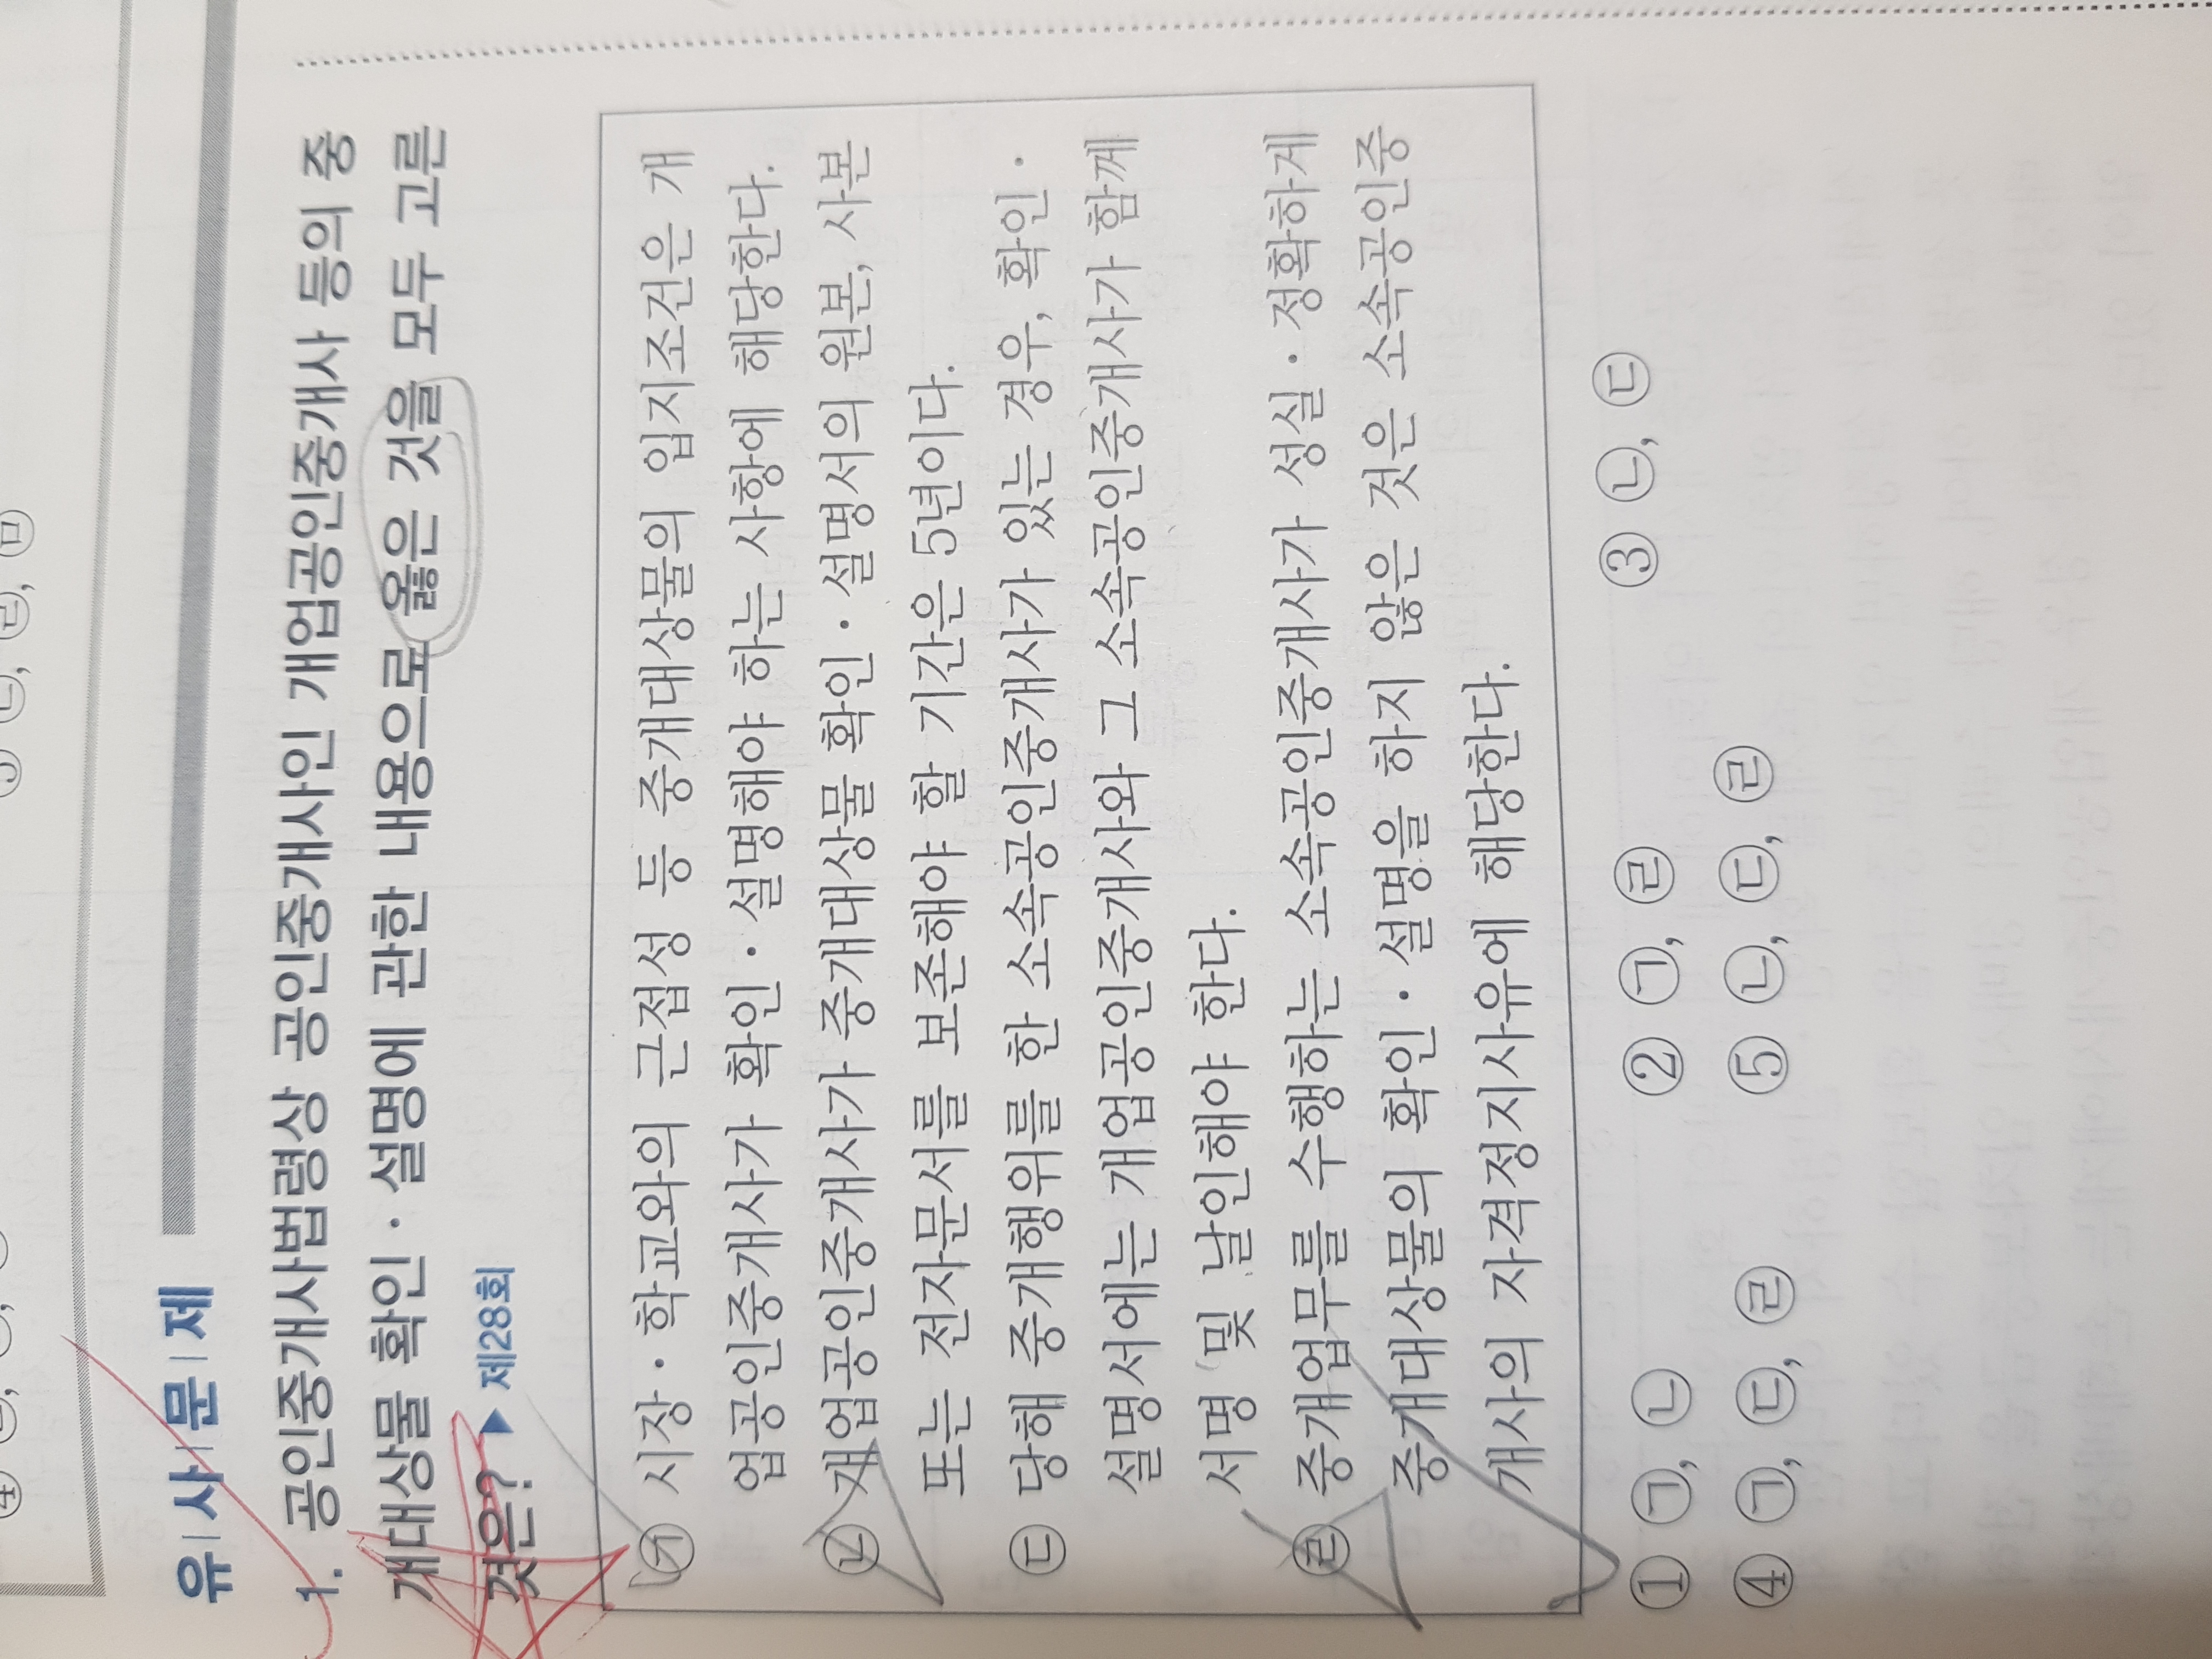 유 사 문 제
1. 공인중개사법령상 공인중개사인 개업공인중개사 등의 중
개대상물 확인 · 설명에 관한 내용으로 옳은 것을 모두 고른
것은? ▶ 제28회
㉠ 시장 · 학교와의 근접성 등 중개대상물의 입지조건은 개
업공인중개사가 확인 · 설명해야 하는 사항에 해당한다.
㉡ 개업공인중개사가 중개대상물 확인 · 설명서의 원본, 사본
또는 전자문서를 보존해야 할 기간은 5년이다.
㉢ 당해 중개행위를 한 소속공인중개사가 있는 경우, 확인 ·
설명서에는 개업공인중개사와 그 소속공인중개사가 함께
서명 및 날인해야 한다.
㉣ 중개업무를 수행하는 소속공인중개사가 성실 · 정확하게
중개대상물의 확인 · 설명을 하지 않은 것은 소속공인중
개사의 자격정지사유에 해당한다.
① ㉠, ㉡ ② ㉠, ㉣ ③ ㉡, ㉢
④ ㉠, ㉢, ㉣ ⑤ ㉡, ㉢, ㉣